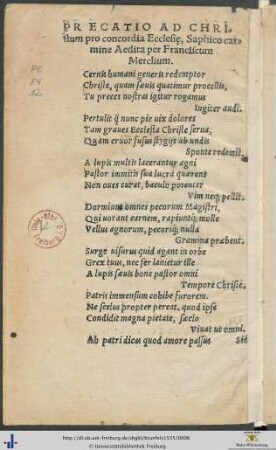 PRECATIO AD CHRI
stum pro concordia Ecclesię, Saphico car
mine Aedita per Franciscum
Merclium.
Cernis humani generis redemptor
Christe, quam sæuis quatimur procellis,
Tu preces nostras igitur rogamus
Iugiter audi.
Pertulit q̃ nunc pie uix dolores
Tam graues Ecclesia Christe serua,
Quam cruor fusus stygijs ab undis
Sponte redemit.
A lupis multis lacerantur agni
Pastor immitis sua lucra quærens
Non oues curat, baculo potenter
Vim neq; pellit.
Dormiunt omnes pecorum Magistri,
Qui uorant carnem, rapiuntq; molle
Vellus agnorum, pecoriq; nulla
Gramina præbent.
Surge uisurus quid agant in orbe
Grex tuus, nec fer lanietur ille
A lupis sæuis bone pastor omni
Tempore Christe.
Patris immensum cohibe furorem.
Ne scelus propter pereat, quod ipse
Condidit magna pietate, sæclo
Viuat ut omni.
Ab patri dicas quod amore passus
PO
84
12.
http://dl.ub.uni-freiburg.de/diglit/brunfels1535/0006
© Universitätsbibliothek Freiburg